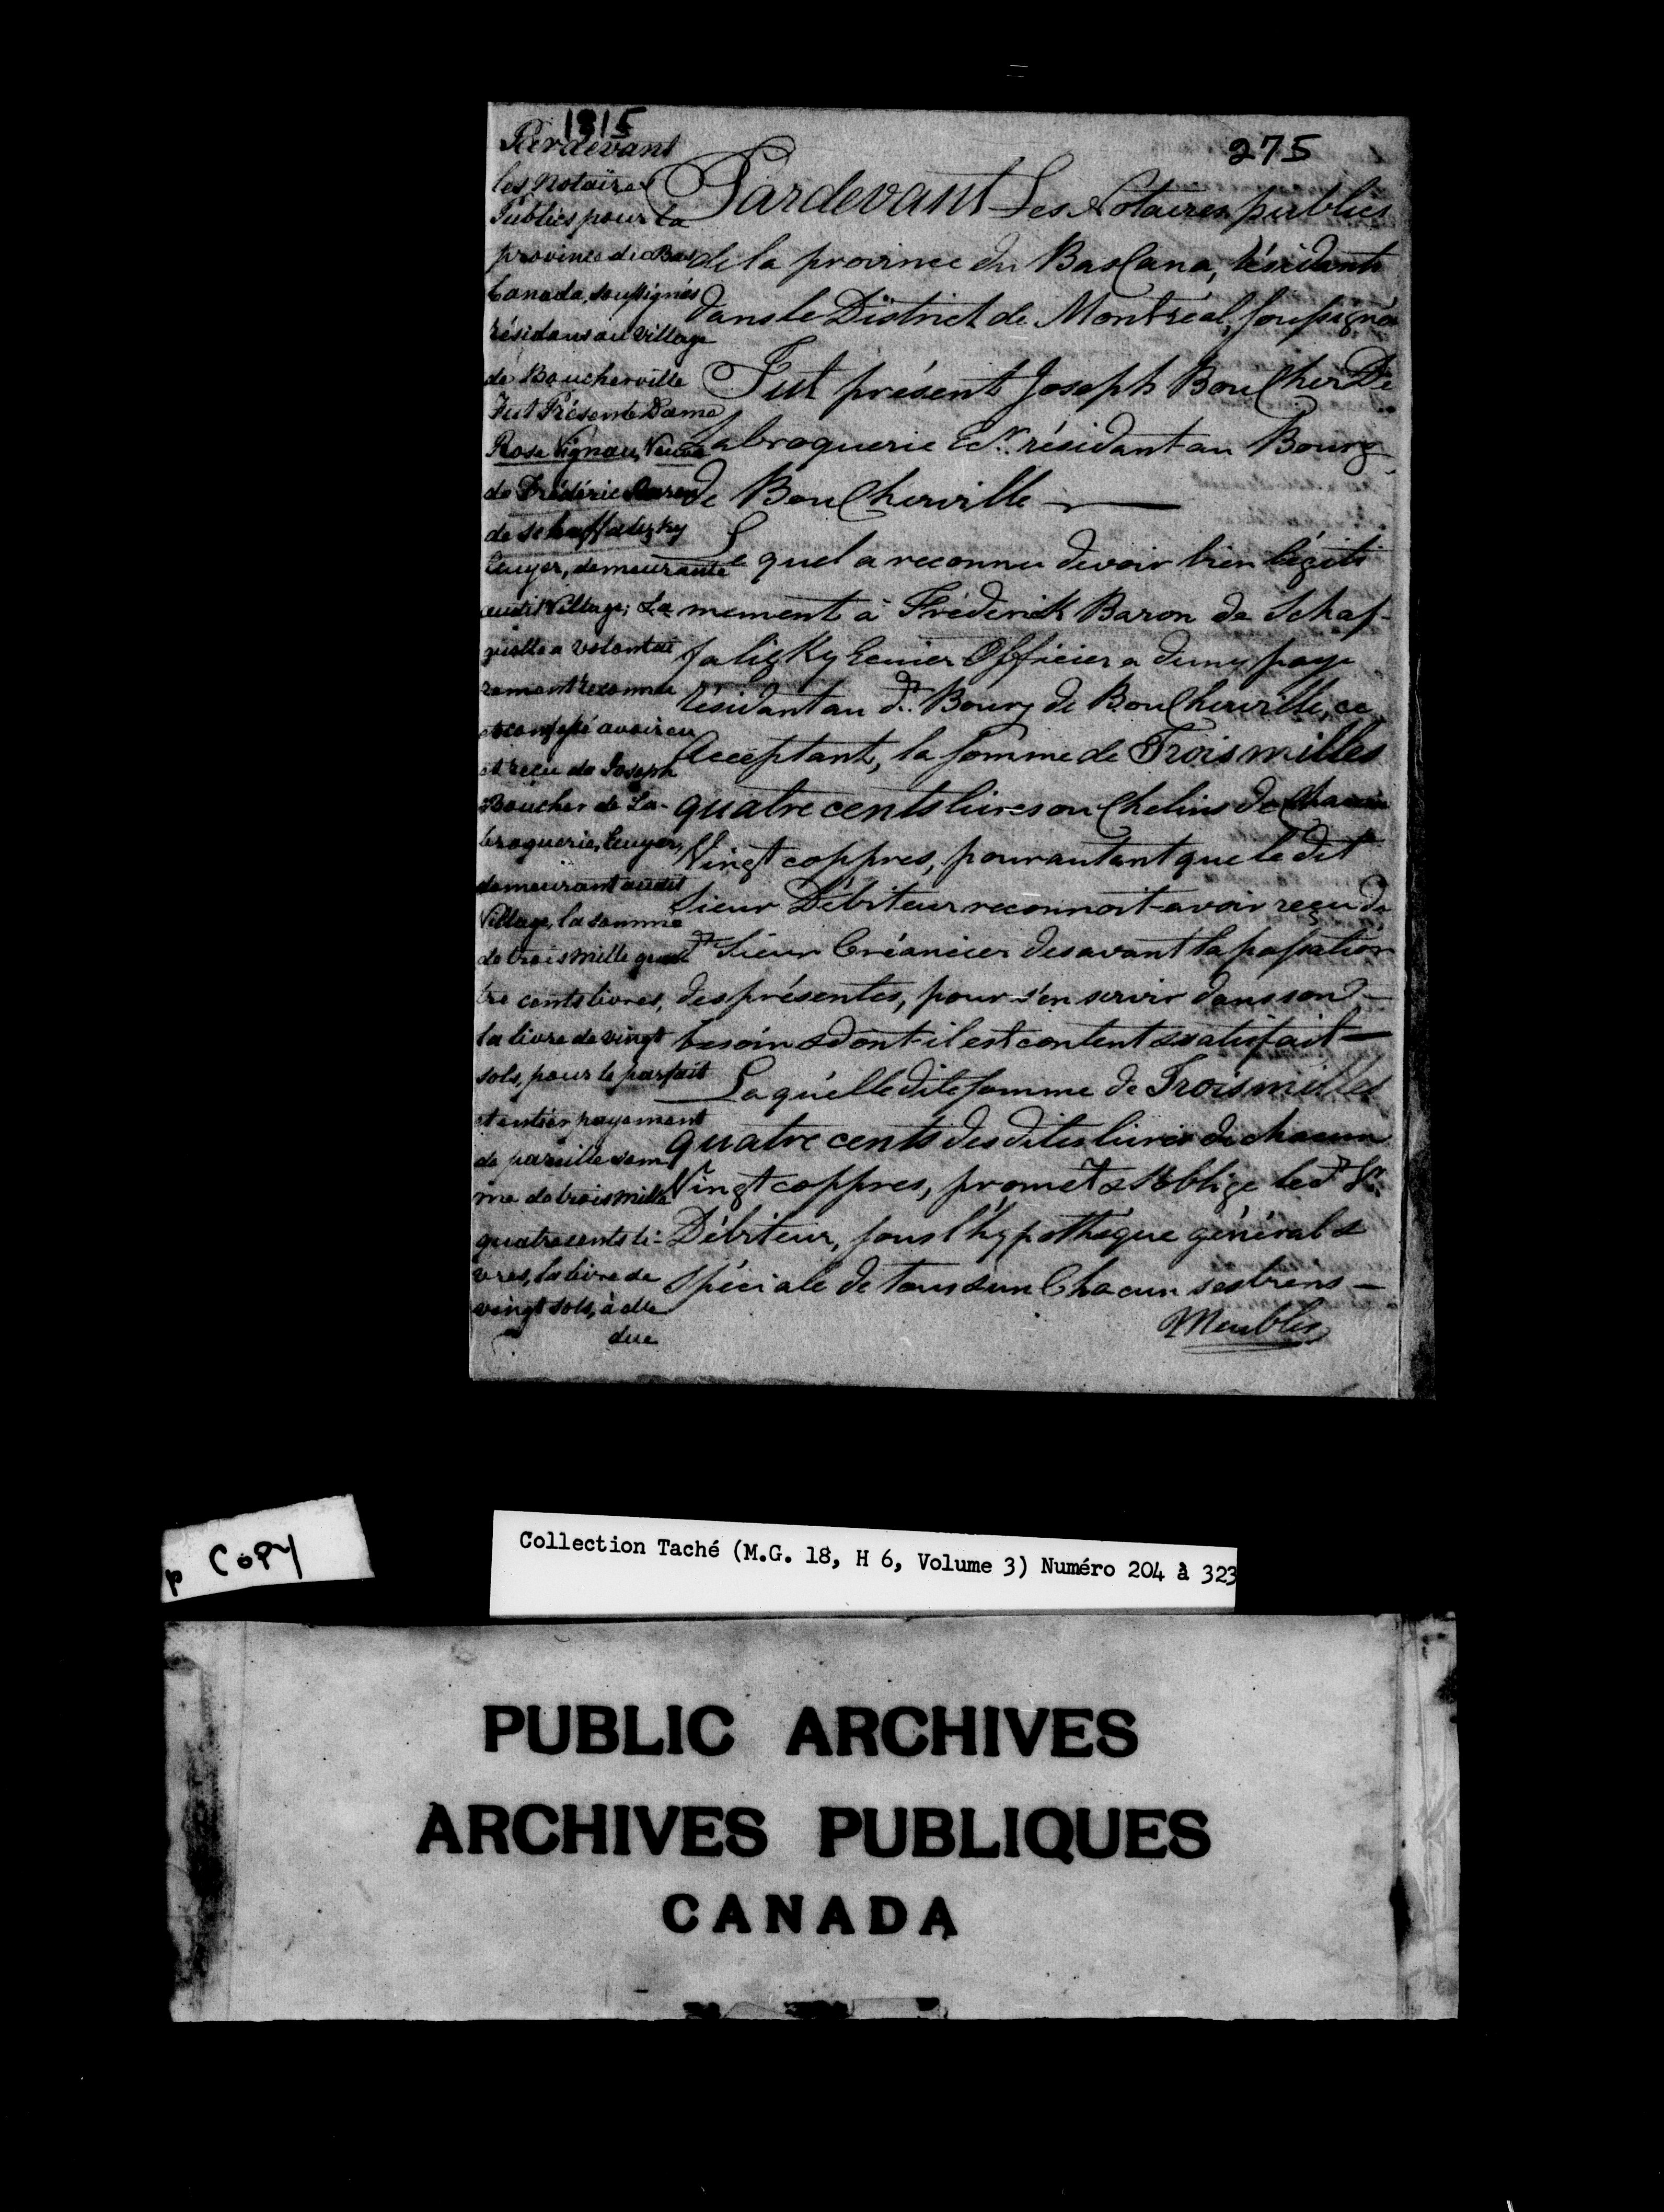 1815
275
Pardevant
les Notaires
Publics pour la
province du Bas
Canada, soussignés
résidans au village
de Boucherville
Fut Présente Dame
Rose Vignau, Veuve
de Frédéric Baron
de Schaffalizky
Ecuyer, demeurante
audit Village; La
quelle a volontai
rement reconnu
et confessé avoir eu
et reçu de Joseph
Boucher de La-
broquerie, Ecuyer,
demeurant audit
Village, la somme
de trois mille quat
tre cents livres,
la livre de vingt
sols, pour le parfait
et entier payement
de pareille som
me de trois mille
quatre cents li-
vres, la livre de
vingt sols, à elle
due
Pardevant Les Notaires publics
de la province du Bas Cana, résidants
dans le District de Montréal, soussignés
Fut présent Joseph Boucher De
Labroquerie Ecr. résidant au Bourg
de Boucherville
Le quel a reconnu devoir bien légiti
mement à Fréderick Baron de Schaf-
falizky Ecuier Officier a demy paye
résidant au dt. Bourg de Boucherville, ce
Acceptant, la somme de Trois milles
quatre cents livres ou Chelins de Chacun
Vingt coppres, pour autant que le dit
Sieur Débiteur reconnoit avoir reçu du
dt Sieur Créancier des avant la passation
des présentes, pour s'en servir dans son
besoin & dont il est content & satisfait
La quelle dite somme de Trois milles
quatre cents des dites livres de chacun
Vingt coppres, promet & s'oblige le dt Sr.
Débiteur, sous l'hypothèque général &
Spéciale de tous & un Chacun ses biens
Meubles
p COPY
Collection Taché (M.G. 18, H 6, Volume 3) Numéro 204 à 323
PUBLIC ARCHIVES
ARCHIVES PUBLIQUES
CANADA